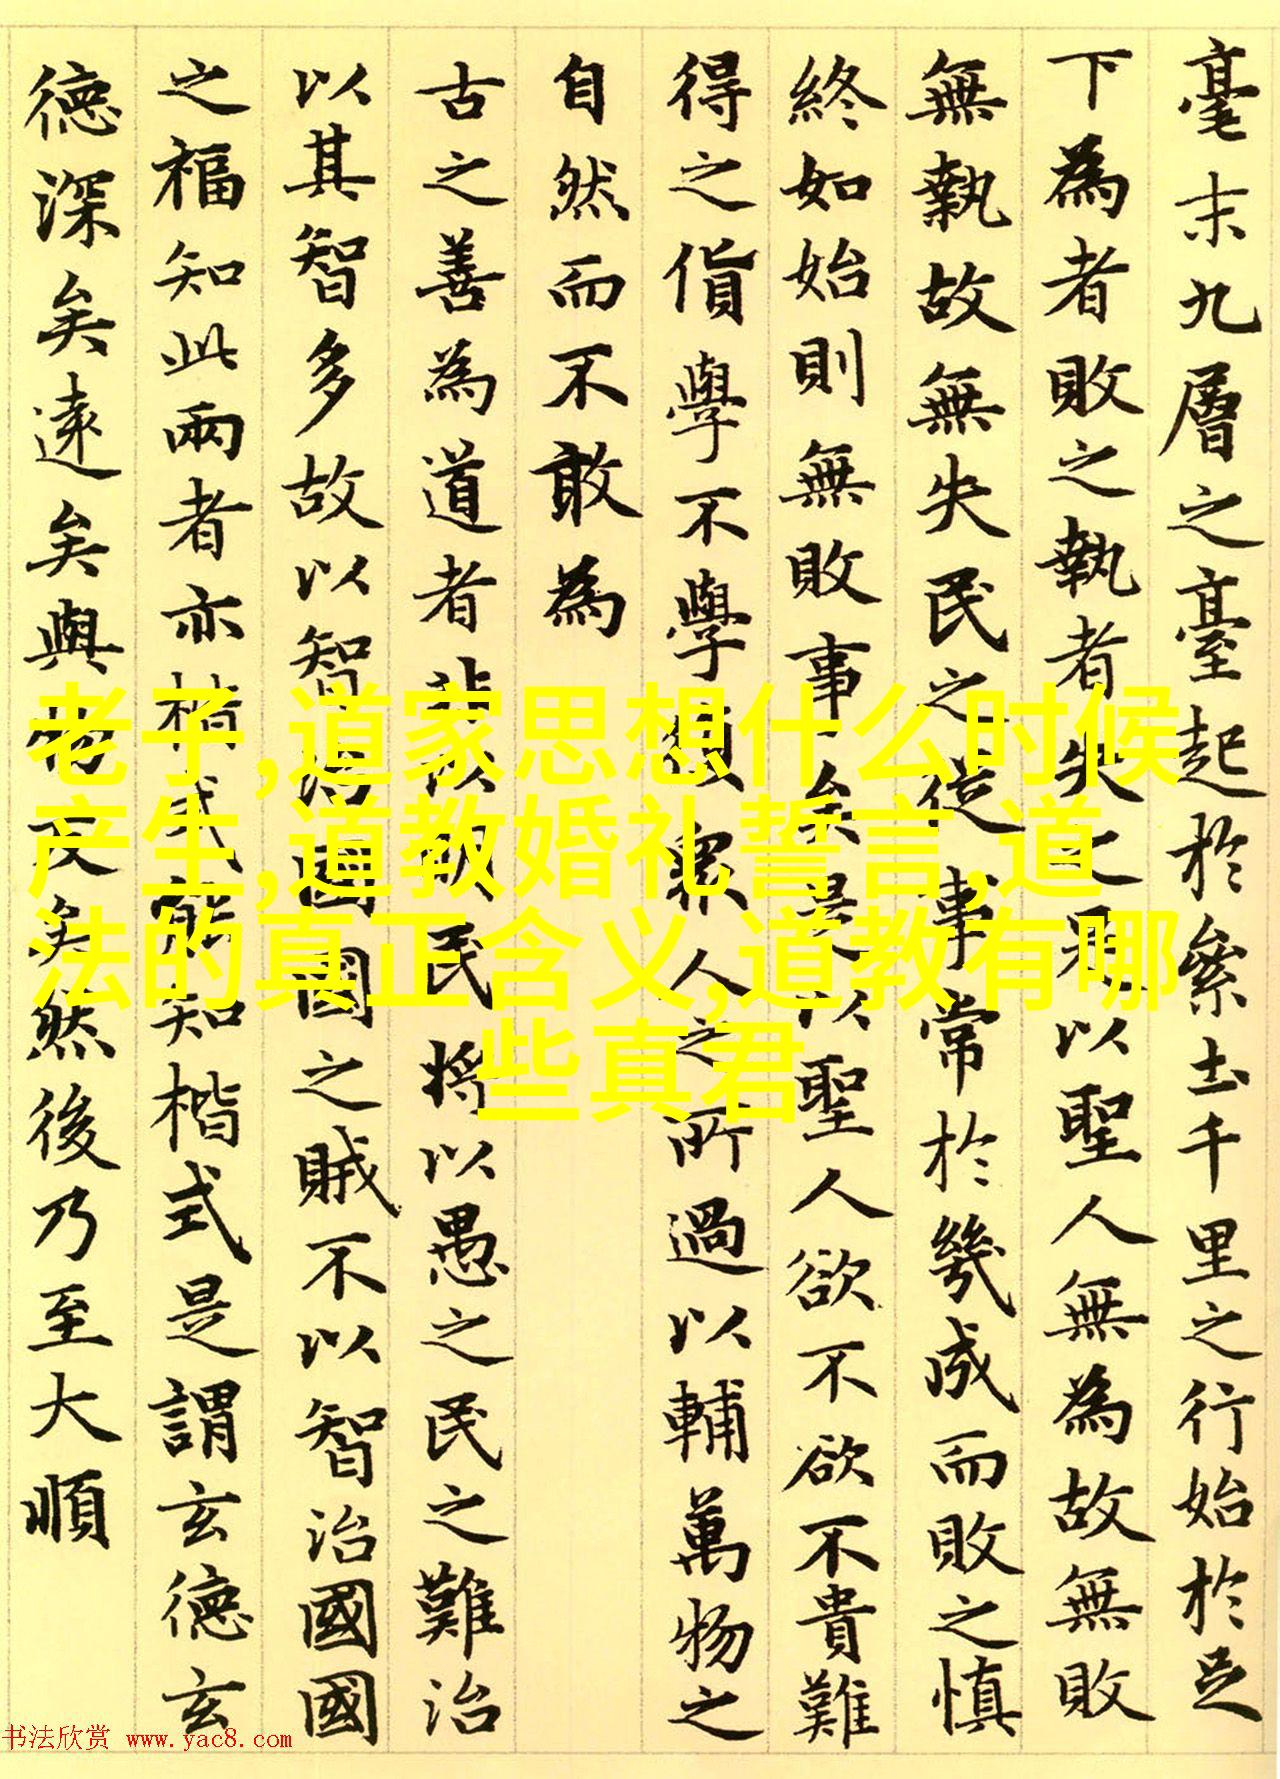 毫末九層之臺起於絫土千里之行始於足
下為者敗之執者失之是以聖人無為故無敗
無執故無失民之從事常於幾成而敗之慎
終如始則無敗事矣是以聖人欲不欲不貴難
得之貨學不學眾人之所過以輔萬物之
自然而不敢為
古之善為道者非以明民將以愚之民之難治
以其智多故以智治國國之賊不以智治國國
之福知此兩者亦楷式能知楷式是謂玄德玄
德深矣遠矣與物反矣然後乃至大順
老子,道家思想什么时候
产生,道教婚礼誓言,道
法的真正含义,道教有哪
些真君
书法欣赏 www.yac8.com